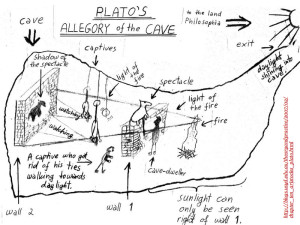 PLATO'S
ALLEGORY of the CAVE
to the land
Philosophia
cave
captives
exit
Shadow of
the spectacle
light of
the fire
spectacle
daylight
shining
cave into
watching
watching
light of
the fire
fire
A captive who got
rid of his ties
walking towards
daylight.
cave-dweller
sunlight can
only be seen
right of wall 1.
wall 2
wall 1